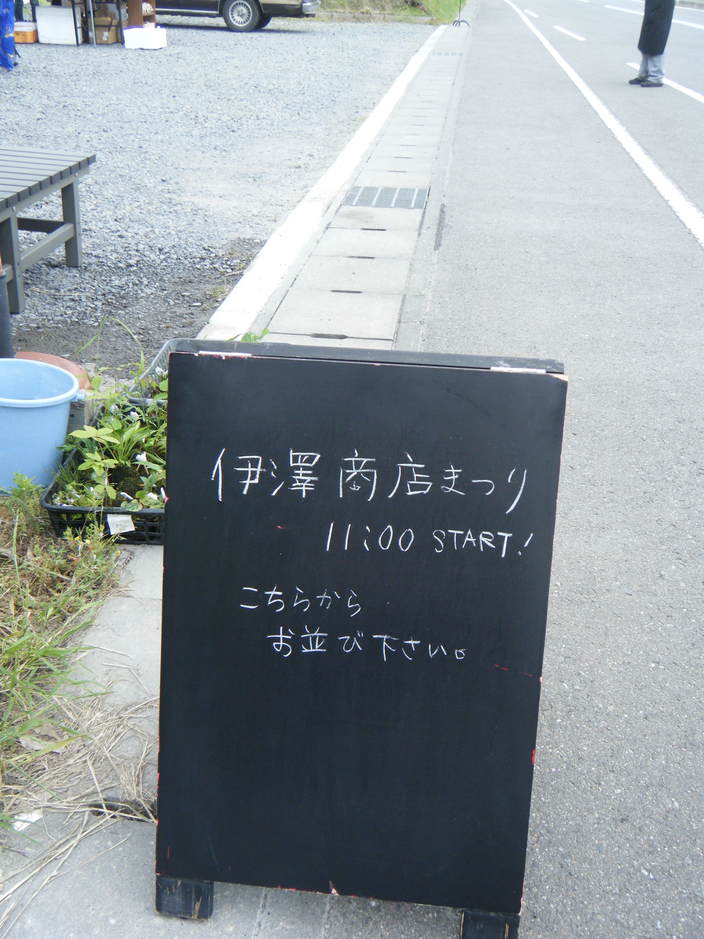 伊澤商店まつり
11:00 START!
こちらから
お並び下さい。